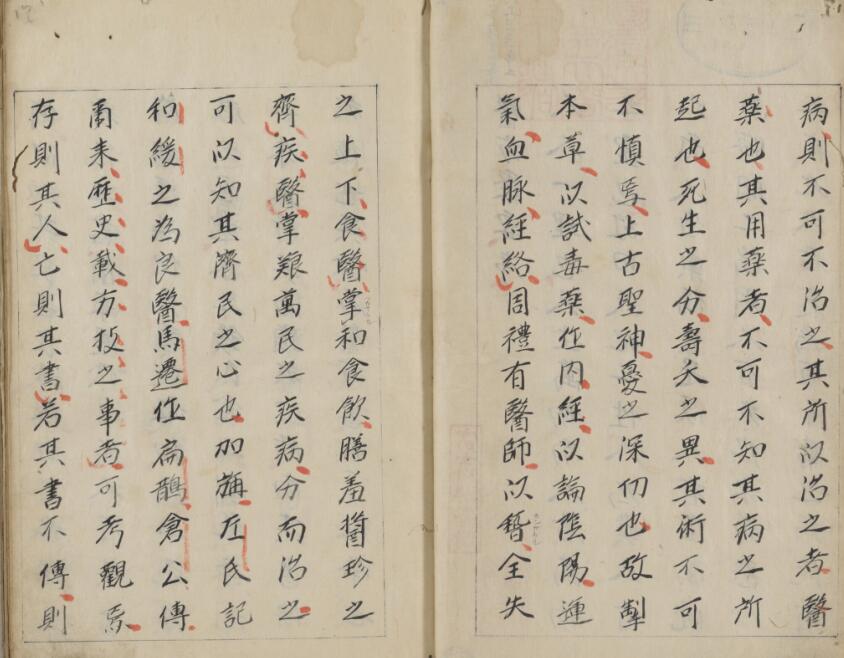 病則不可不治之其所以治之者醫
藥也其用藥者不可不知其病之所
起也死生之分壽夭之異其術不可
不慎焉上古聖神憂之深切也故製
本草以試毒藥作内經以論陰陽運
氣血脉經絡周禮有醫師以稽全失
之上下食醫掌和食飲膳羞醬珍之
齊疾醫掌艱萬民之疾病分而治之
可以知其濟民之心也加旃左氏記
和緩之為良醫馬遷作扁鵲倉公傳
爾来歷史載方技之事者可考觀焉
存則其人亡則其書若其書不傳則